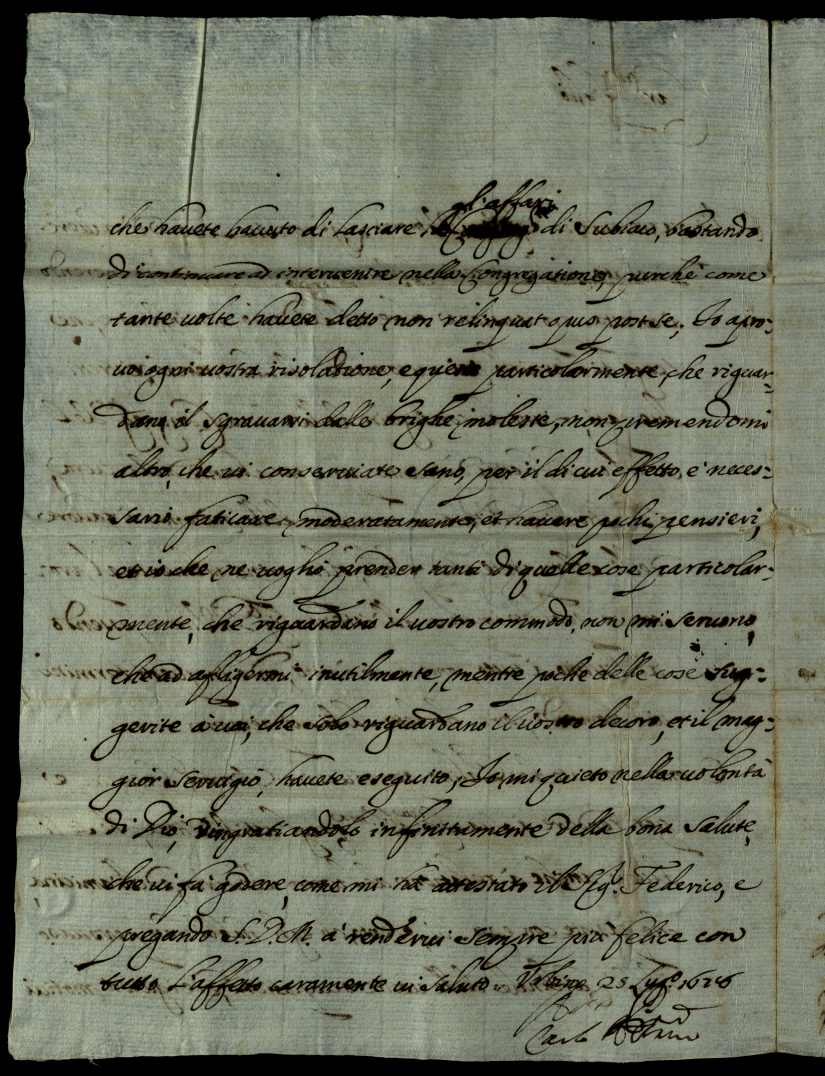 gl'affari
che havete havuto di lasciare di Subiaco, bastando
di continuare ad intervenire nella Congregatione, purche come
tante volte havete detto non relinquat opus post se; Io apro-
vo ogni vostra risolutione, e queste particolarmente, che riguar-
dano il sgravarsi dalle brighe moleste, non premendomi
altro, che vi conserviate sano, per il di cui effetto, è neces-
sario faticare moderatamente, et havere pochi pensieri,
et io che ne voglio prender tanti di quelle cose particolar-
mente, che riguardano il vostro commodo, non mi servono,
che ad afligermi inutilmente, mentre poche delle cose sug-
gerite à voi, che solo riguardano il vostro decoro, et il mag-
gior servigio, havete eseguito, Io mi quieto nella volontà
di Dio, ringratiandolo infinitamente della bona salute,
che vi fà godere, come mi hà attestato il Sig.r Federico, e
pregando S. D. M. à rendervi sempre più felice con
tutto l'affetto caramente vi saluto. Urbino 25 Lug.o
Carlo